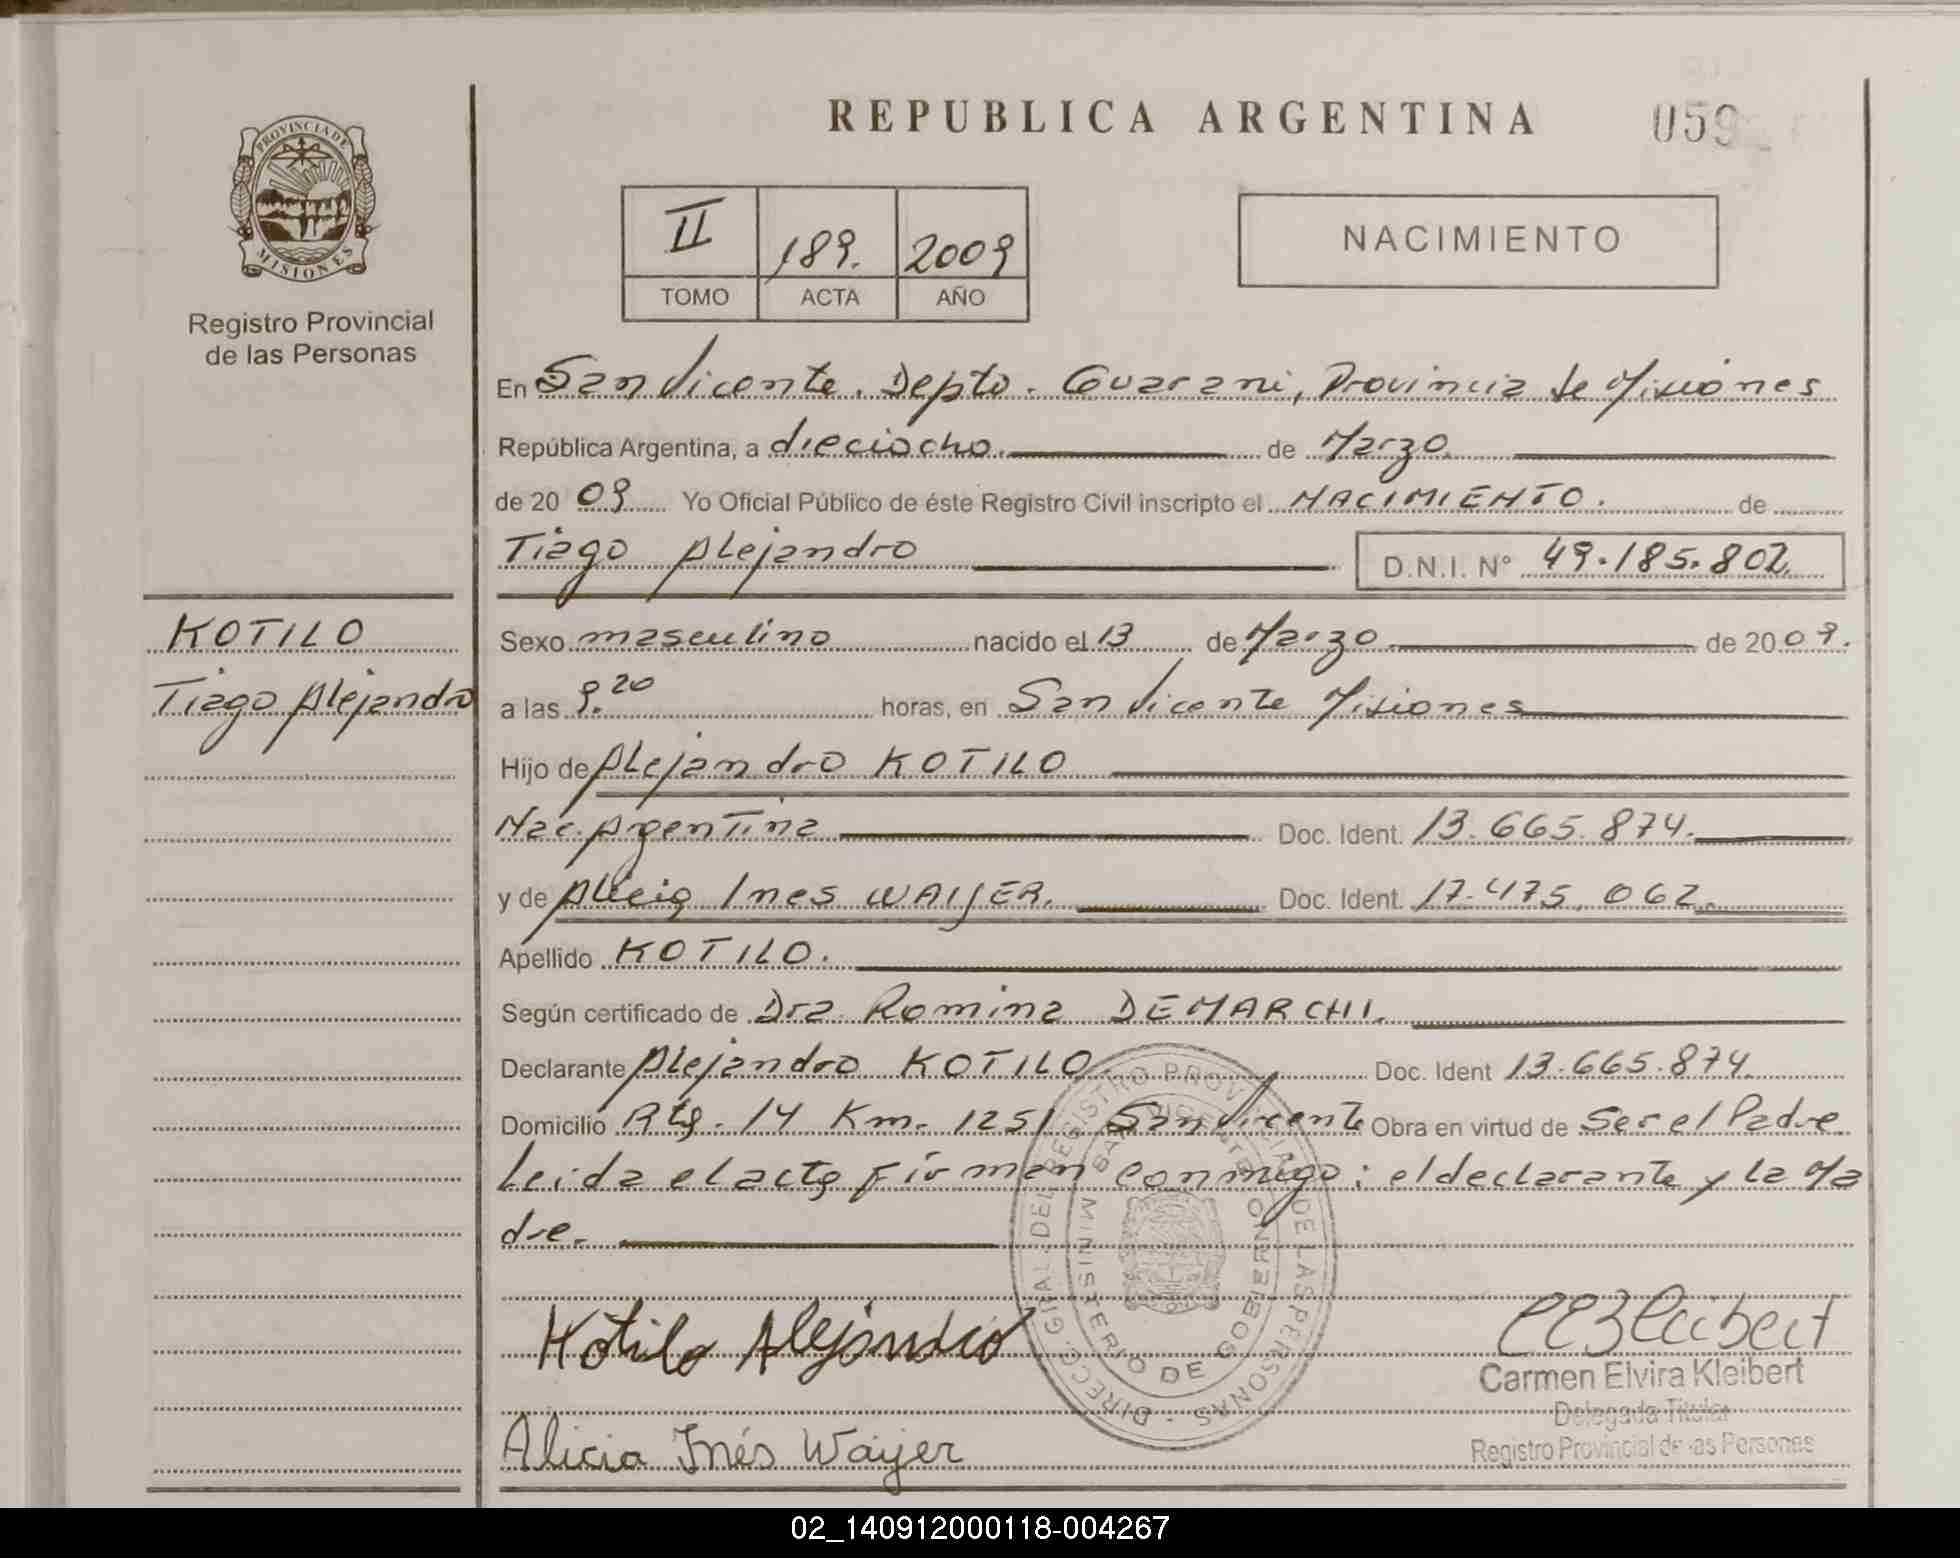 REPUBLICA ARGENTINA
059
PROVINCIA DE
MISIONES
Registro Provincial
de las Personas
II 189. 2009
TOMO ACTA AÑO
NACIMIENTO
En San Vicente. Depto. Guarani, Provincia de Misiones
República Argentina, a dieciocho. de Marzo.
de 20 09 Yo Oficial Público de éste Registro Civil inscripto el NACIMIENTO. de
Tiago Alejandro D.N.I. N° 49.185.802.
KOTILO
Tiago Alejandro
Sexo masculino nacido el 13 de Marzo de 20 09.
a las 9.20 horas, en San Vicente Misiones
Hijo de Alejandro KOTILO
Nac. Argentina Doc. Ident. 13.665.874.
y de Alicia Ines WAIJER. Doc. Ident. 17.475.062.
Apellido KOTILO.
Según certificado de Dra. Romina DEMARCHI.
Declarante Alejandro KOTILO Doc. Ident 13.665.874.
Domicilio Rta. 14 Km. 1251 San Vicente Obra en virtud de Ser el Padre
Leida el acta firman conmigo: el declarante y la Ma
dre.
DIRECC. GRAL. DEL REGISTRO PROVINCIAL DE LAS PERSONAS
SAN VICENTE
MINISTERIO DE GOBIERNO
Kotilo Alejandro
Alicia Inés Waijer
CEKleibert
Carmen Elvira Kleibert
Delegada Titular
Registro Provincial de las Personas
02_140912000118-004267